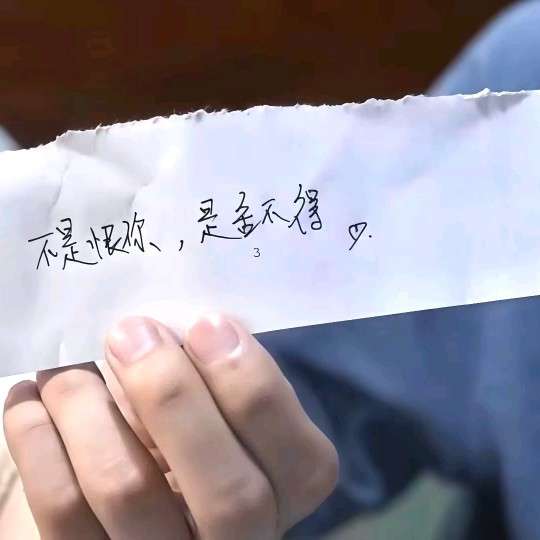 不是恨你,是舍不得 ♡.
3